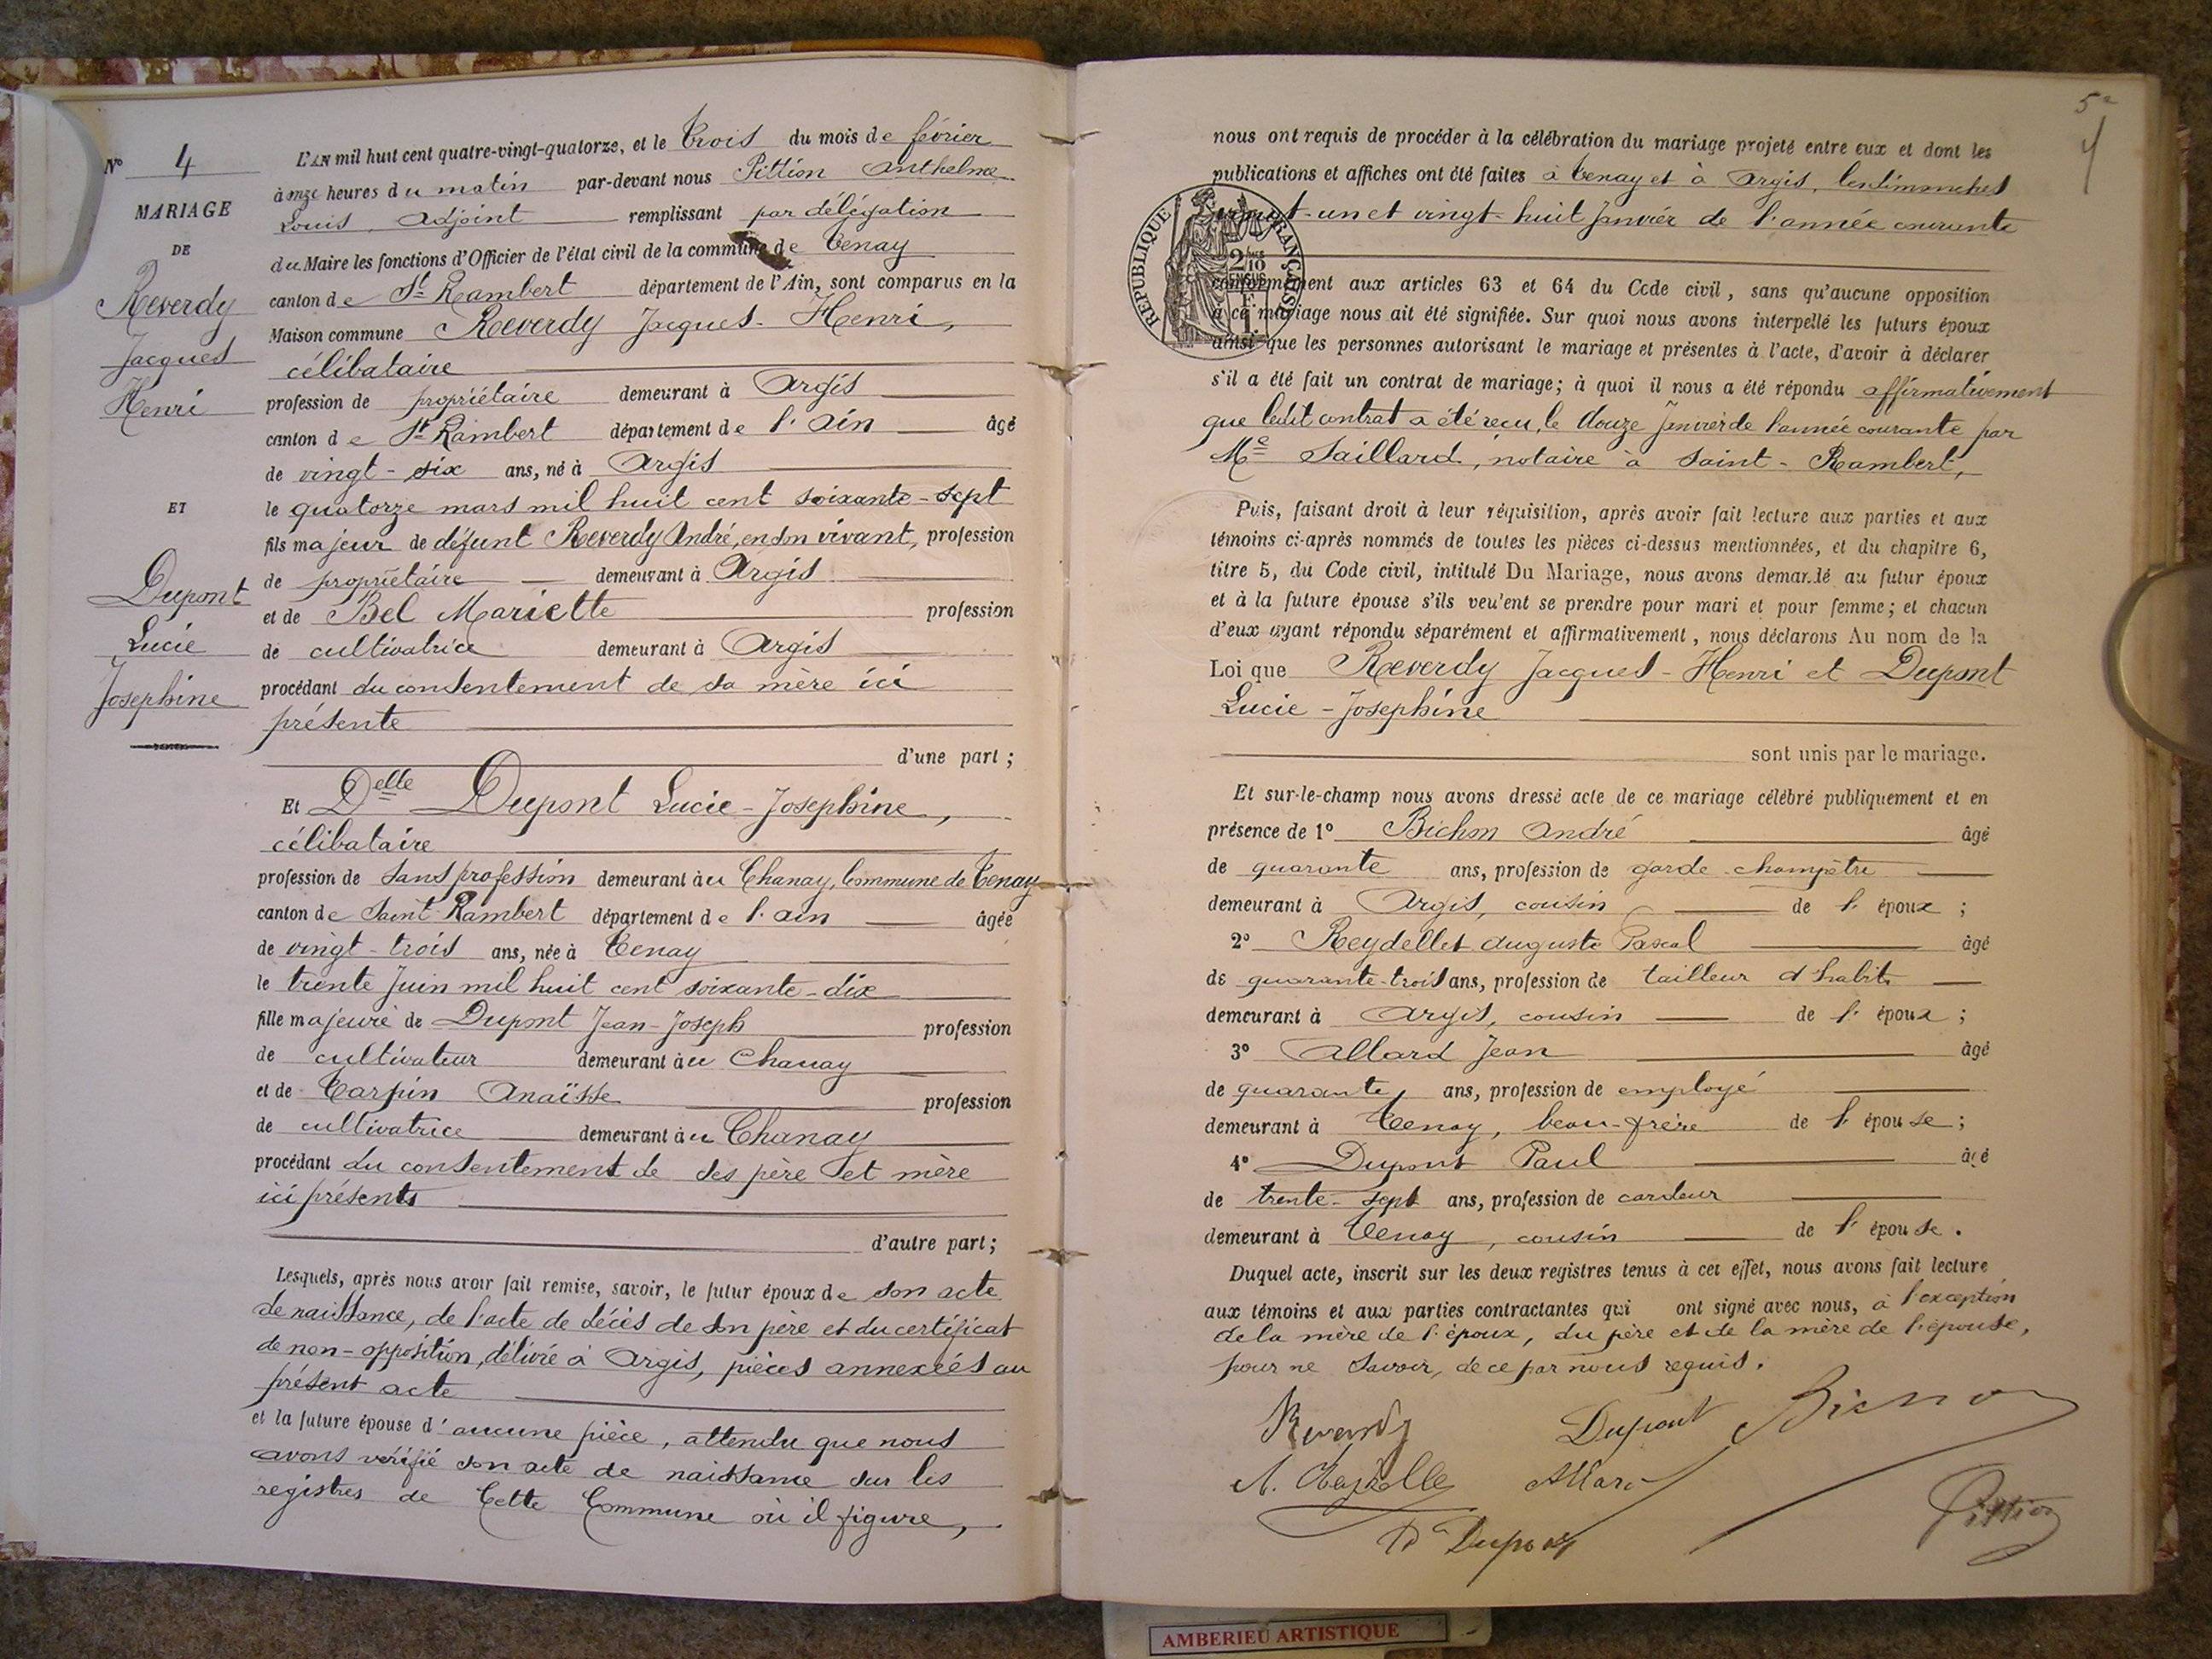 N° 4
MARIAGE
DE
Reverdy
Jacques
Henri
ET
Dupont
Lucie
Josephine
L'AN mil huit cent quatre-vingt-quatorze, et le trois du mois de février
à onze heures du matin par-devant nous Pittion Anthelme
Louis, Adjoint remplissant par délégation
du Maire les fonctions d'Officier de l'état civil de la commune de Tenay
canton de St Rambert département de l'Ain, sont comparus en la
Maison commune Reverdy Jacques-Henri,
célibataire
profession de propriétaire demeurant à Argis
canton de St Rambert département de l'Ain âgé
de vingt-six ans, né à Argis
le quatorze mars mil huit cent soixante-sept
fils majeur de défunt Reverdy André, en son vivant, profession
de propriétaire demeurant à Argis
et de Bel Mariette profession
de cultivatrice demeurant à Argis
procédant du consentement de sa mère ici
présente
d'une part ;
Et Delle Dupont Lucie-Josephine,
célibataire
profession de sans profession demeurant au Chanay, Commune de Tenay
canton de Saint Rambert département de l'ain âgée
de vingt-trois ans, née à Tenay
le trente Juin mil huit cent soixante-dix
fille majeure de Dupont Jean-Joseph profession
de cultivateur demeurant au Chanay
et de Carpin Anaïsse profession
de cultivatrice demeurant au Chanay
procédant du consentement de ses père et mère
ici présents
d'autre part ;
Lesquels, après nous avoir fait remise, savoir, le futur époux de son acte
de naissance, de l'acte de décès de son père et du certificat
de non-opposition, délivré à Argis, pièces annexées au
présent acte
et la future épouse d'aucune pièce, attendu que nous
avons vérifié son acte de naissance sur les
registres de Cette Commune où il figure,
5e
4
nous ont requis de procéder à la célébration du mariage projeté entre eux et dont les
publications et affiches ont été faites à Tenay et à Argis, les dimanches
vingt-un et vingt-huit Janvier de l'année courante
RÉPUBLIQUE FRANÇAISE
2/10 EN SUS
1 F.
conformément aux articles 63 et 64 du Code civil, sans qu'aucune opposition
à ce mariage nous ait été signifiée. Sur quoi nous avons interpellé les futurs époux
ainsi que les personnes autorisant le mariage et présentes à l'acte, d'avoir à déclarer
s'il a été fait un contrat de mariage ; à quoi il nous a été répondu affirmativement
que ledit contrat a été reçu, le douze Janvier de l'année courante par
Me Saillard, notaire à Saint-Rambert,
Puis, faisant droit à leur réquisition, après avoir fait lecture aux parties et aux
témoins ci-après nommés de toutes les pièces ci-dessus mentionnées, et du chapitre 6,
titre 5, du Code civil, intitulé Du Mariage, nous avons demandé au futur époux
et à la future épouse s'ils veulent se prendre pour mari et pour femme ; et chacun
d'eux ayant répondu séparément et affirmativement, nous déclarons Au nom de la
Loi que Reverdy Jacques-Henri et Dupont
Lucie-Josephine
sont unis par le mariage.
Et sur-le-champ nous avons dressé acte de ce mariage célébré publiquement et en
présence de 1° Bichon André âgé
de quarante ans, profession de garde champêtre
demeurant à Argis, cousin de l'époux ;
2° Reydellet Auguste Pascal âgé
de quarante-trois ans, profession de tailleur d'habits
demeurant à Argis, cousin de l'époux ;
3° Allard Jean âgé
de quarante ans, profession de employé
demeurant à Tenay, beau-frère de l'épouse ;
4° Dupont Paul âgé
de trente-sept ans, profession de cardeur
demeurant à Tenay, cousin de l'épouse.
Duquel acte, inscrit sur les deux registres tenus à cet effet, nous avons fait lecture
aux témoins et aux parties contractantes qui ont signé avec nous, à l'exception
de la mère de l'époux, du père et de la mère de l'épouse,
pour ne savoir, de ce par nous requis.
Reverdy Dupont Bichon
Allard
Dupont Pittion
AMBERIEU ARTISTIQUE